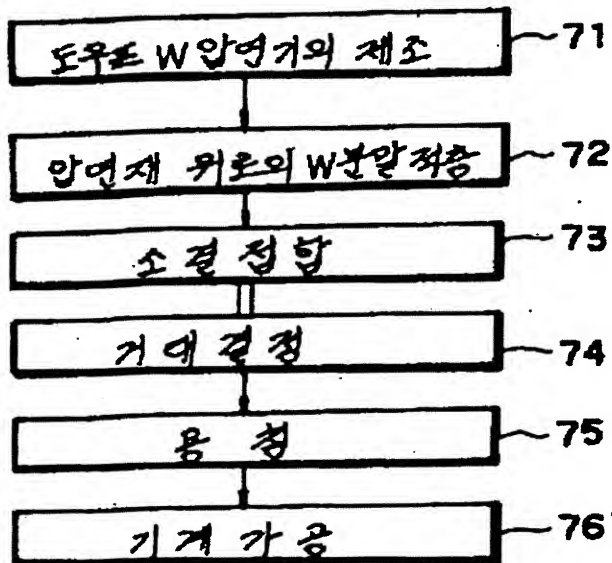 도우프 W압연기의 제조 71
압연재 위로의 W분말적층 72
소결접합 73
거대결정 74
용침 75
기계가공 76